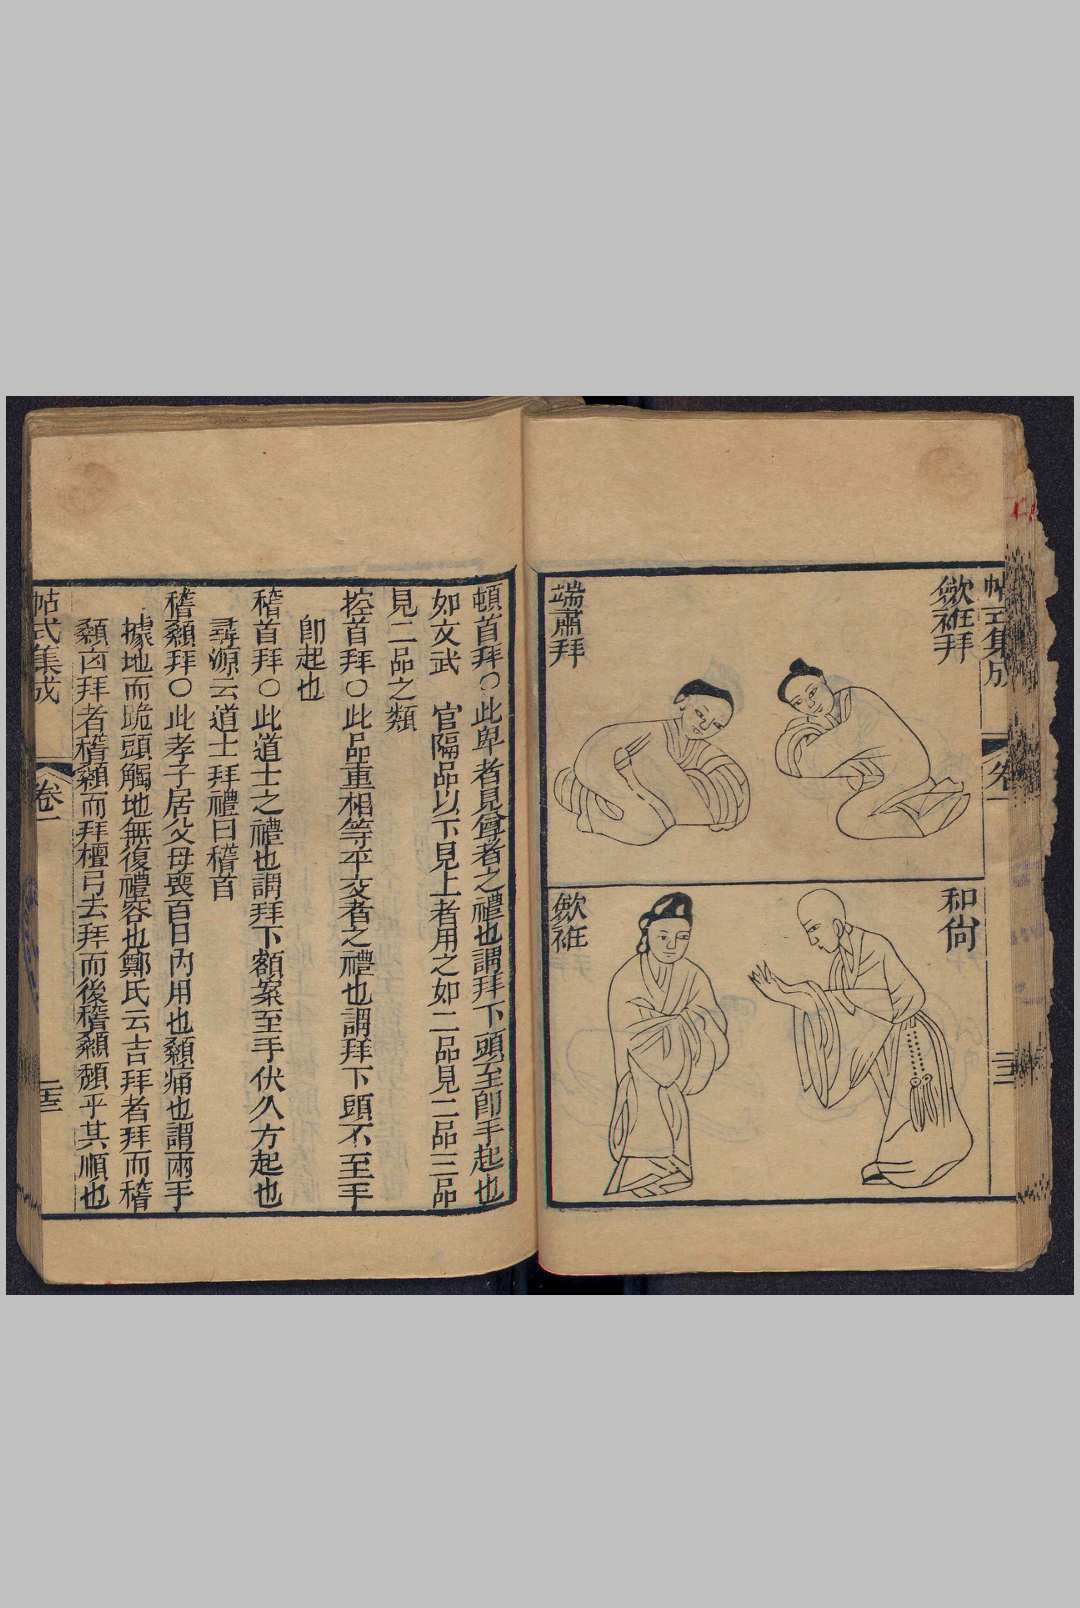 帖式集成
卷
歛衽拜
端肅拜
和尙
歛衽
頓首拜○此卑者見尊者之禮也謂拜下頭至卽手起也
如文武 官隔品以下見上者用之如二品見二品三品
見二品之類
控首拜○此品重相等平交者之禮也謂拜下頭不至手
卽起也
稽首拜○此道士之禮也謂拜下額案至手伏久方起也
尋源云道士拜禮曰稽首
稽顙拜○此孝子居父母喪百日內用也顙痛也謂兩手
據地而跪頭觸地無復禮容也鄭氏云吉拜者拜而稽
顙凶拜者稽顙而拜檀弓去拜而後稽顙頹乎其順也
帖式集成
卷一